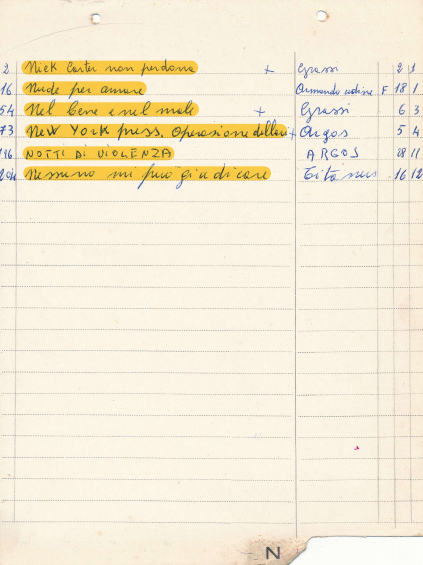 2 Nick Carter non perdona + Grassi 2 1
16 Nude per amare Armando F 18 1
54 Nel bene e nel male + Grassi 6 3
73 New York press, operazione dollari + Argos 5 4
NOTTI DI VIOLENZA ARGOS 28 11
204 Nessuno mi può giudicare Titanus 16 12
N